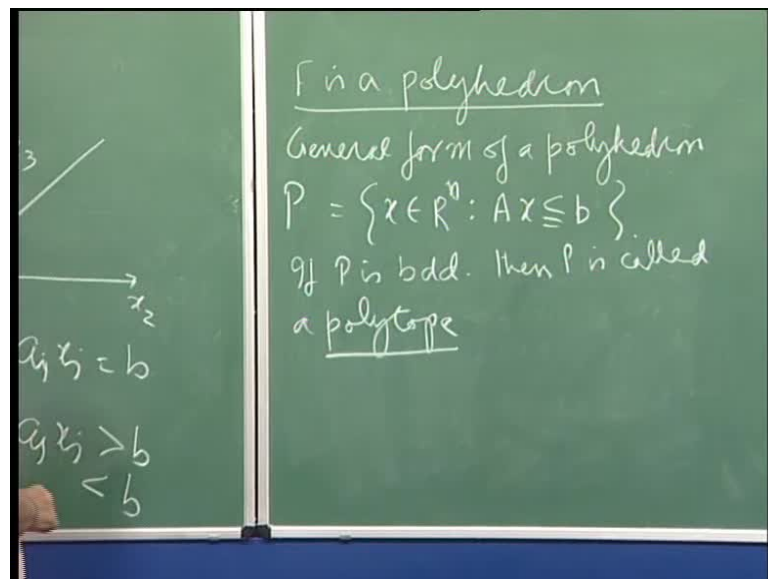 3
x₂
aⱼ xⱼ = b
aⱼ xⱼ > b
< b
F is a polyhedron
General form of a polyhedron
P = {x ∈ Rⁿ : Ax ≦ b}.
If P is bdd. then P is called
a polytope